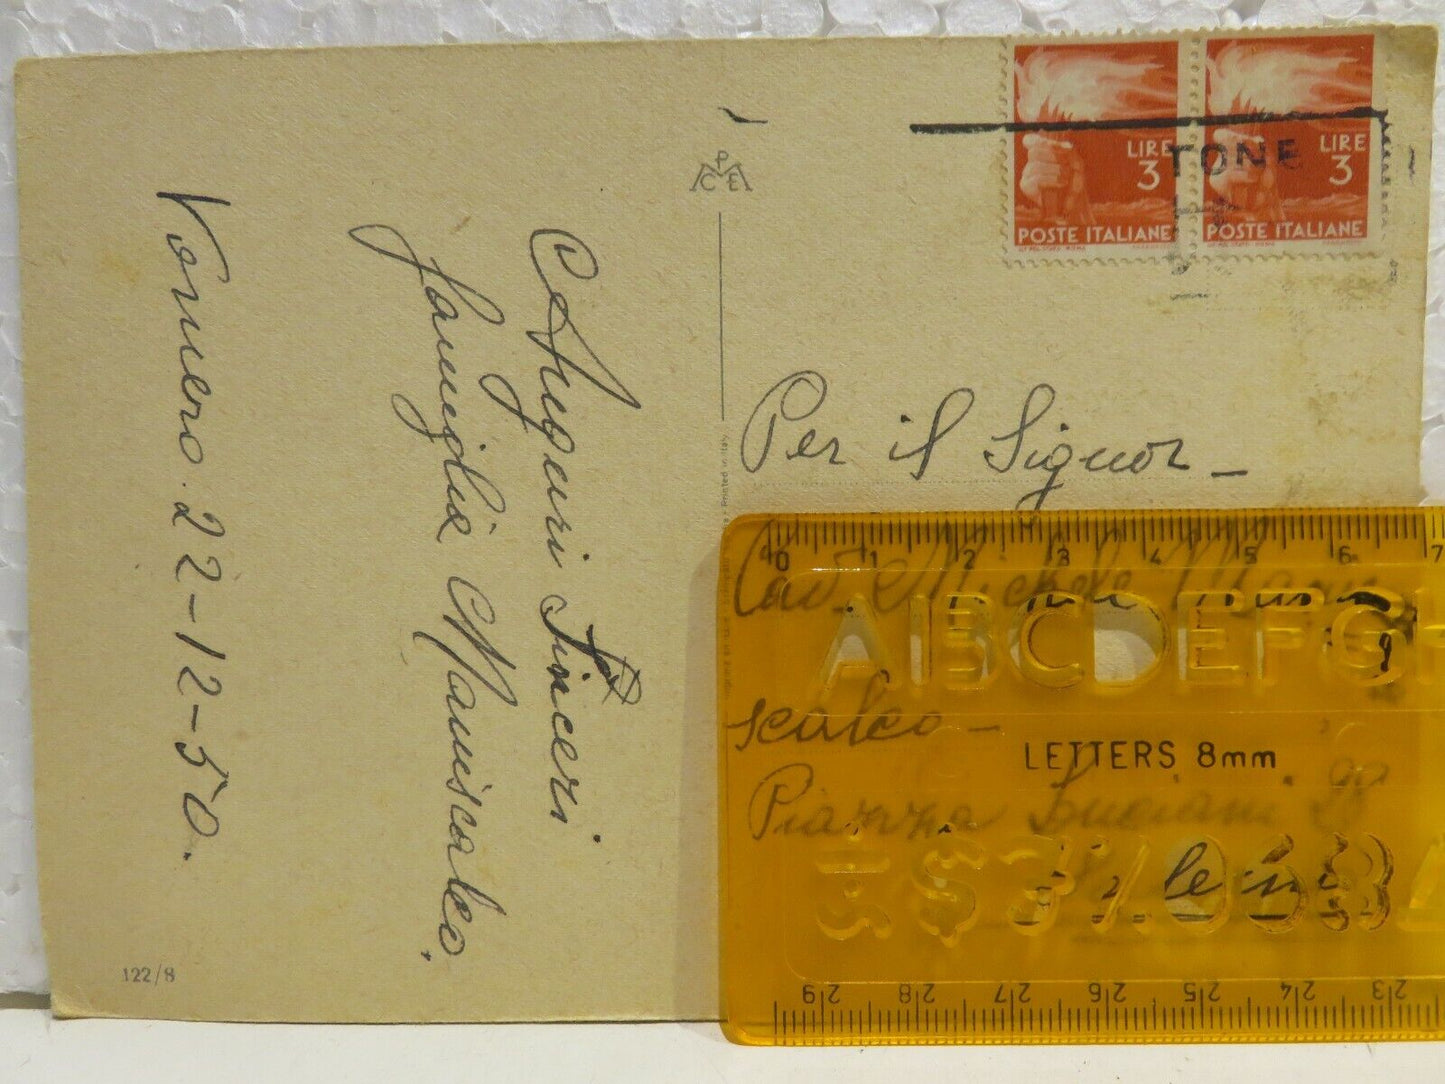 Vomero. 22-12-50.
Auguri Sinceri
famiglia Maniscalco.
122/8
CPE
Printed in Italy
LIRE
3
POSTE ITALIANE
LIRE
3
POSTE ITALIANE
TONE
Per il Signor -
Cav. Michele Mani
scalco -
Piazza Luciani 28
0 1 2 3 4 5 6 7
ABCDEFGH
LETTERS 8mm
29 28 27 26 25 24 23